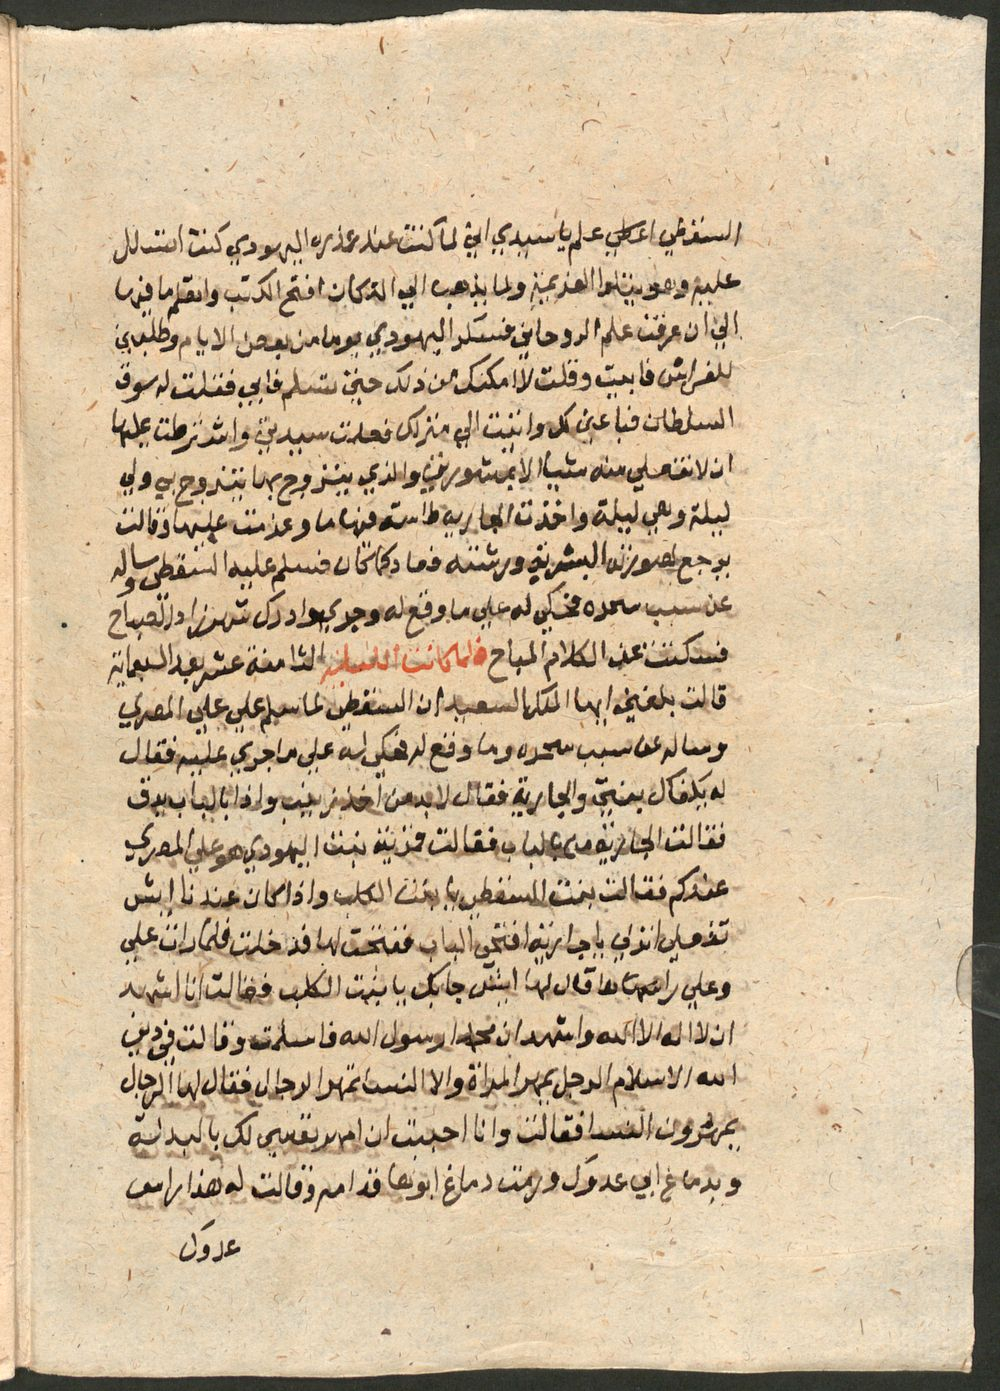 السقطي اعطي علم ياسيدي اني لما كنت عند عذره اليهودي كنت اتسلل
عليه وهو يتلوا العزيمة ولما يذهب الي الدكان افتح الكتب وانعلم ما فيها
الي ان عرفت علم الروحاني فسكر اليهودي يوما من بعض الايام وطلبني
للفراش فابيت وقلت لا امكنك من ذلك حتي تسلم فابي فقلت له سوق
السلطان فباعني لك واتيت الي منزلك فعلمت سيدتي واشترطت عليها
ان لا تفعلي منه شيا الا بمشورتي والذي يتزوج بها يتزوج بي ولي
ليلة وهي ليلة واخذت الجاريه طاسة فيها ما وعزمت عليها وقالت
يرجع لصورته البشرية ورشته فعاد كما كان فسلم عليه السقطي وساله
عن سبب سحره فحكي له علي ما وقع له وجري وادرك شهرزاد الصباح
فسكتت عن الكلام المباح فلما كانت الليلة الثامنة عشر بعد السبعماية
قالت بلغني ايها الملك السعيد ان السقطي لما سلم علي علي المصري
وساله عن سبب سحره وما وقع له فحكي له علي ما جري عليه فقال
له يكفاك بنتي والجارية فقال لا بد من اخذ زينب واذا بالباب يدق
فقالت الجارية من بالباب فقالت قمرية بنت اليهودي هو علي المصري
عندكم فقالت بنت السقطي يا بنت الكلب واذا كان عندنا ايش
تفعلي انزلي يا جارية افتحي الباب ففتحت لها فدخلت فلما رات علي
وعلي راها قال لها ايش جابك يا بنت الكلب فقالت انا اشهد
ان لا اله الا الله واشهد ان محمدا رسول الله فاسلمت وقالت في دين
الله الاسلام الرجل يمهر المراة والا النسا تمهر الرجال فقال لها الرجال
يمهرون النسا فقالت وانا احببت ان امهر نفسي لك بالبدلة
وبدماغ ابي عدوك ورمت دماغ ابوها قدامه وقالت له هذا راس
عدوك